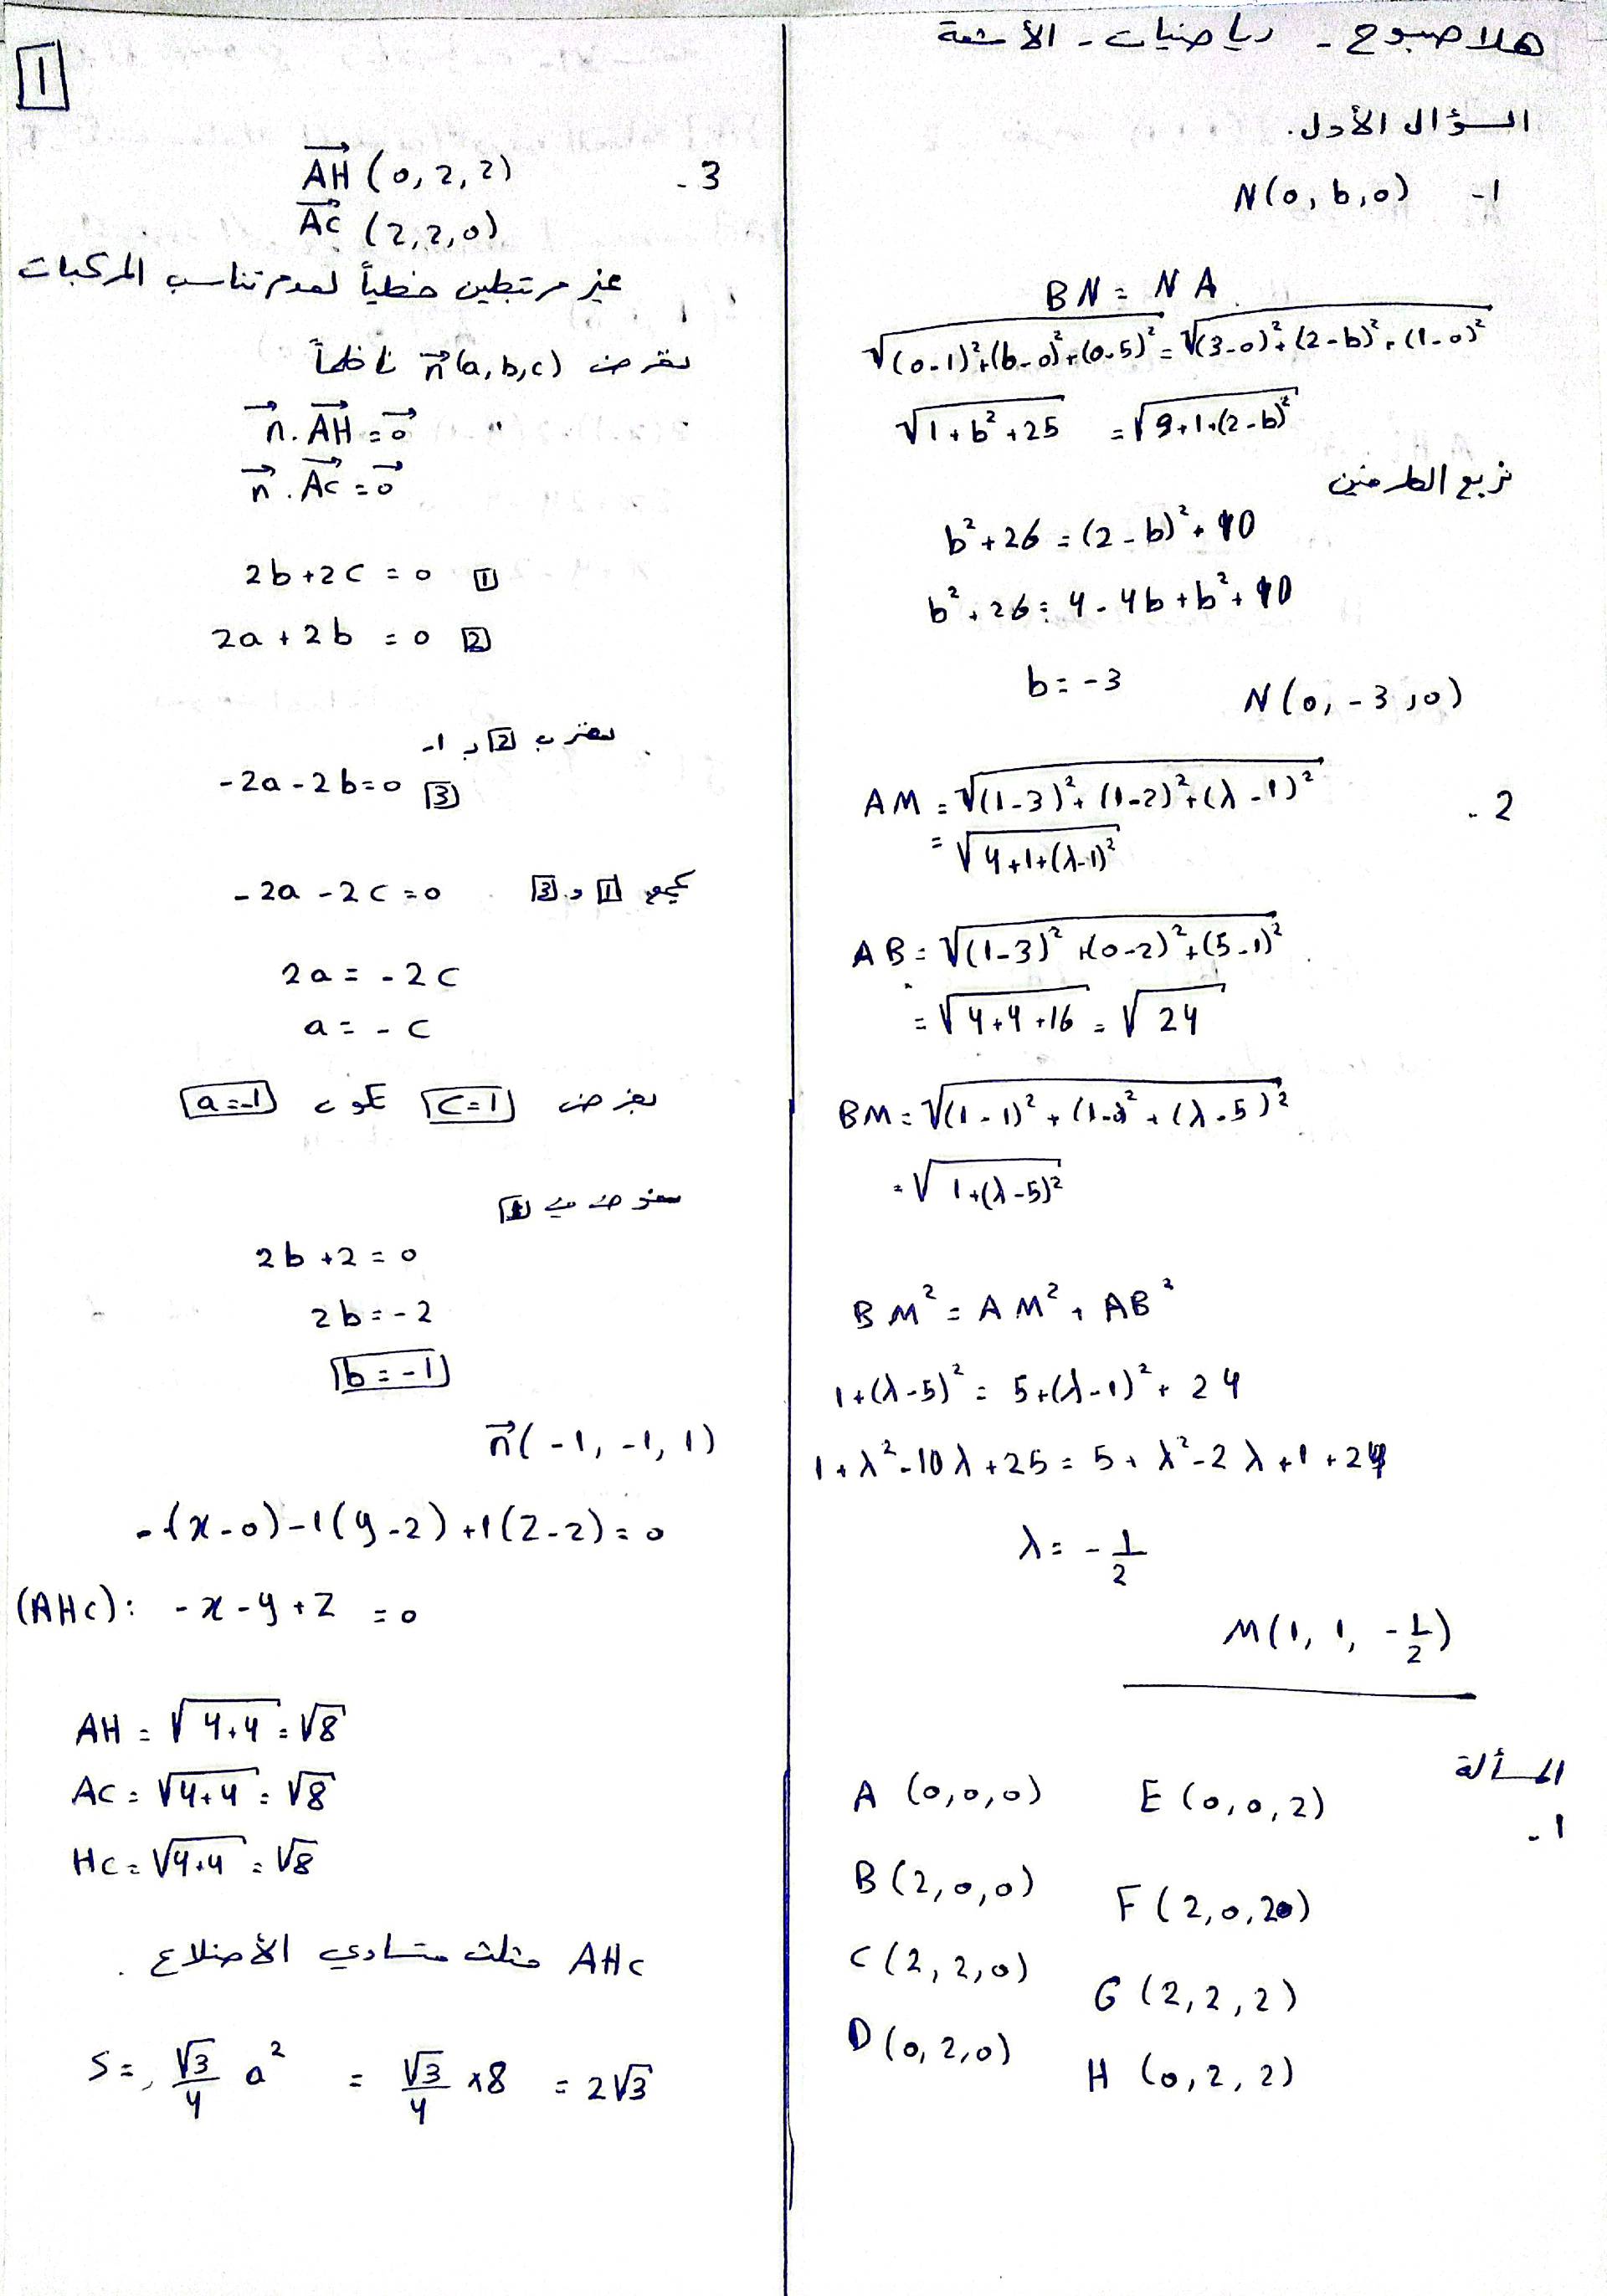 هلا صبوح - رياضيات - الأشعة
السؤال الأول.
1- N(0, b, 0)
BN = NA
√((0-1)²+(b-0)²+(0-5)²) = √((3-0)²+(2-b)²+(1-0)²)
√(1+b²+25) = √(9+1+(2-b)²)
نربع الطرفين
b²+26 = (2-b)²+10
b²+26 = 4-4b+b²+10
b = -3 N(0, -3, 0)
2- AM = √((1-3)²+(1-2)²+(λ-1)²)
= √(4+1+(λ-1)²)
AB = √((1-3)²+(0-2)²+(5-1)²)
= √(4+4+16) = √24
BM = √((1-1)²+(1-0)²+(λ-5)²)
= √(1+(λ-5)²)
BM² = AM² + AB²
1+(λ-5)² = 5+(λ-1)²+24
1+λ²-10λ+25 = 5+λ²-2λ+1+24
λ = -1/2
M(1, 1, -1/2)
المسألة
1-
A (0,0,0) E (0,0,2)
B (2,0,0) F (2,0,2)
C (2,2,0) G (2,2,2)
D (0,2,0) H (0,2,2)
1
3- AH→ (0,2,2)
AC→ (2,2,0)
غير مرتبطين خطياً لعدم تناسب المركبات
نفرض n→(a,b,c) ناظماً
n→ . AH→ = 0→
n→ . AC→ = 0→
2b+2c = 0 [1]
2a+2b = 0 [2]
نضرب [2] بـ -1
-2a-2b=0 [3]
نجمع [1] و [3] -2a-2c=0
2a = -2c
a = -c
بفرض c=1 تكون a=-1
نعوض في [1]
2b+2 = 0
2b = -2
b = -1
n→(-1, -1, 1)
-1(x-0)-1(y-2)+1(z-2) = 0
(AHC): -x-y+z = 0
AH = √(4+4) = √8
AC = √(4+4) = √8
HC = √(4+4) = √8
AHC مثلث متساوي الأضلاع.
S = √3/4 a² = √3/4 ×8 = 2√3